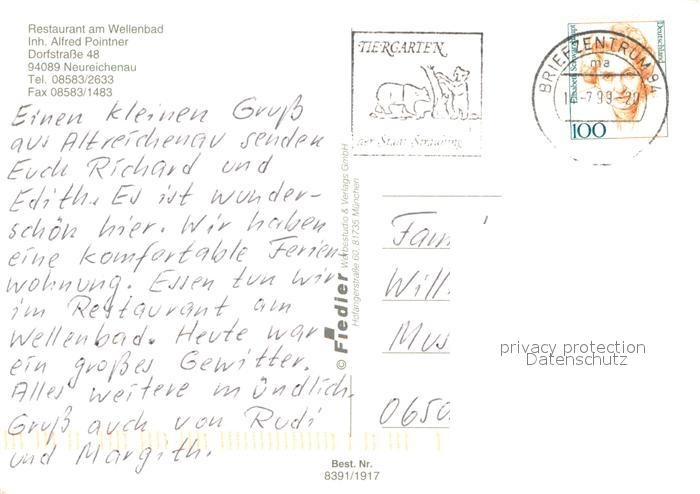 Restaurant am Wellenbad
Inh. Alfred Pointner
Dorfstraße 48
94089 Neureichenau
Tel. 08583/2633
Fax 08583/1483
Einen kleinen Gruß
aus Altreichenau senden
Euch Richard und
Edith. Es ist wunder-
schön hier. Wir haben
eine komfortable Ferien
wohnung. Essen tun wir
im Restaurant am
Wellenbad. Heute war
ein großes Gewitter.
Alles weitere mündlich.
Gruß auch von Rudi
und Margith.
© Fiedler Werbestudio & Verlags GmbH
Hofangerstraße 60, 81735 München
Best. Nr.
8391/1917
TIERGARTEN
der Stadt Straubing
BRIEFZENTRUM 94
ma
14-7.99-20
Deutschland
Elisabeth Schwarzhaupt
100
Fam
Will
Mus
0650
privacy protection
Datenschutz